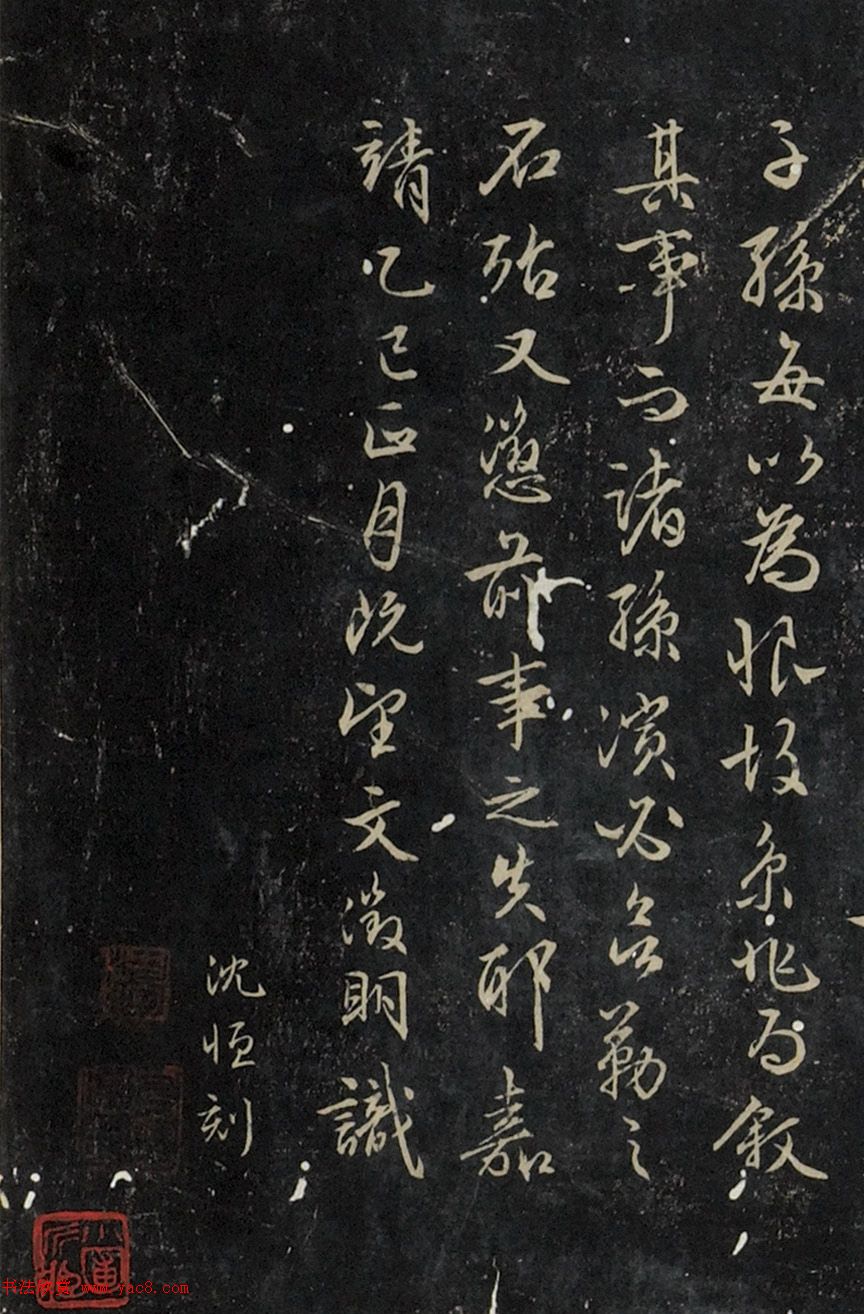 子孫每以為恨故余非为敘
其事而諸孫須必欲勒之
石殆又懲前事之失耶嘉
靖乙巳正月既望文徵明識
沈恒刻
书法欣赏 www.yac8.com